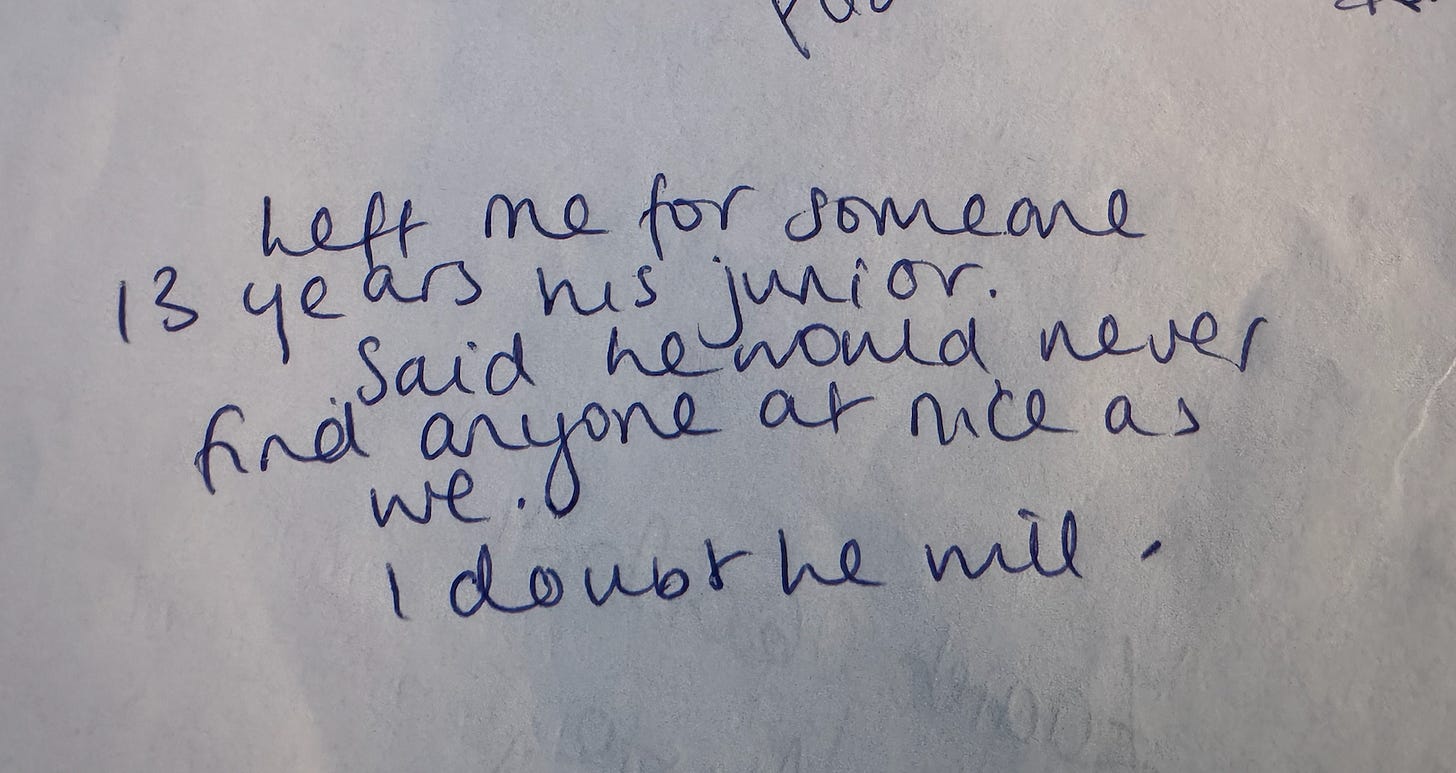 Left me for someone
13 years his junior.
Said he would never
find anyone at nice as
me.
I doubt he will.